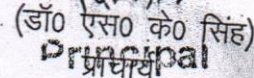 (डॉ0 एस0 के0 सिंह)
Principal
प्राचार्य